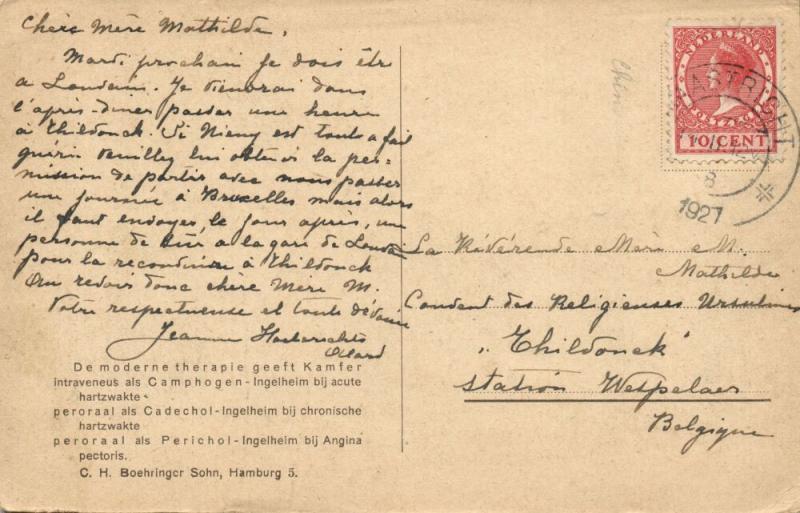 Chère Mère Mathilde,
Mardi prochain je dois être
a Louvain. Je viendrai dans
l'après-diner passer une heure
à Thildonck. Si Nieny est toute a fait
guérie veuillez lui obtenir la per-
mission de partir avec nous passer
une journée à Bruxelles mais alors
il faut envoyer, le jour après, une
personne de  a la gare de Louvain
pour la reconduire à Thildonck
Au revoir donc chère Mère M.
Votre respectueuse et toute dévouée
Jeanne
De moderne therapie geeft Kamfer
intraveneus als Camphogen-Ingelheim bij acute
hartzwakte
peroraal als Cadechol-Ingelheim bij chronische
hartzwakte
peroraal als Perichol-Ingelheim bij Angina
pectoris.
C. H. Boehringer Sohn, Hamburg 5.
NEDERLAND
10 CENT
MAASTRICHT
8
1927
La Révérende Mère M.
Mathilde
Couvent des Religieuses Ursulines
„Thildonck"
station Wespelaer
Belgique